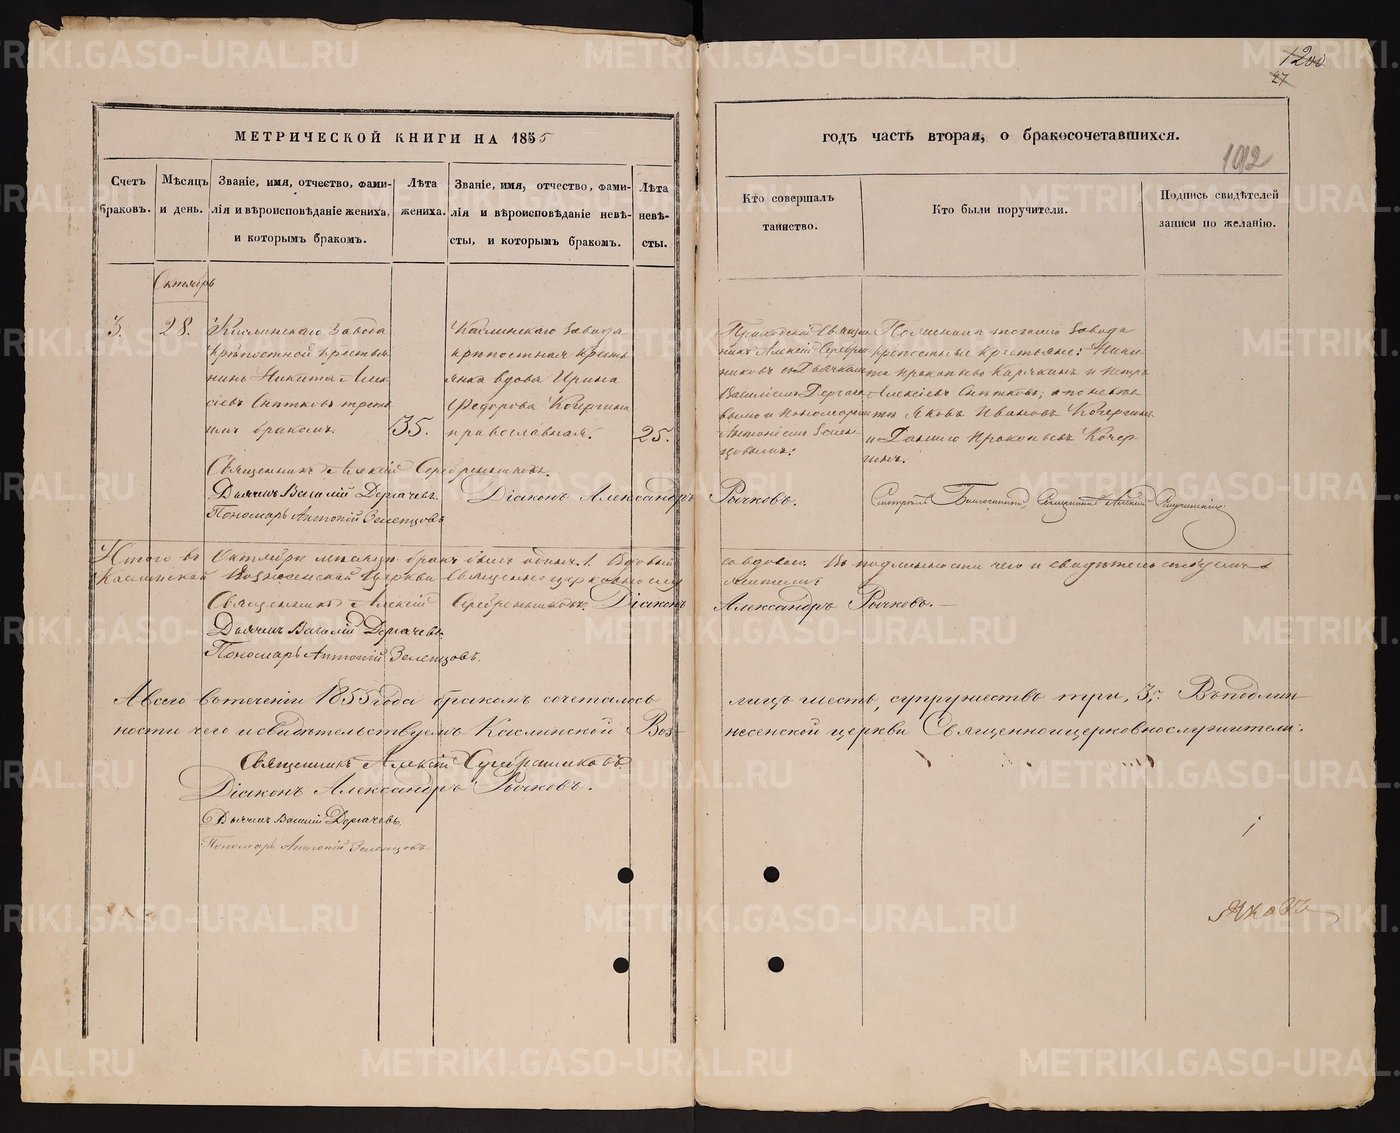 1200
27
МЕТРИЧЕСКОЙ КНИГИ НА 1855
годъ часть вторая, о бракосочетавшихся.
1012
Счетъ браковъ.
Мѣсяцъ и день.
Званіе, имя, отчество, фами-
лія и вѣроисповѣданіе жениха,
и которымъ бракомъ.
Лѣта
жениха.
Званіе, имя, отчество, фами-
лія и вѣроисповѣданіе невѣ-
сты, и которымъ бракомъ.
Лѣта
невѣ-
сты.
Кто совершалъ
таинство.
Кто были поручители.
Подпись свидѣтелей
записи по желанію.
Октябрь
3.
28.
Каслинскаго завода
крѣпостной крестья-
нинъ Никита Алек-
сіевъ Снѣтковъ треть-
имъ бракомъ.
35.
Каслинскаго завода
крѣпостная кресть-
янка вдова Ирина
Ѳедорова Кочергина
православная.
25.
Приходскій Священ-
никъ Алексій Серебрен-
никовъ съ Дьячкомъ
Василіемъ Дергаче-
вымъ и Пономаремъ
Антоніемъ Зелен-
цовымъ.
По женихѣ тогожъ завода
крепостные крестьяне: Ники-
та Прокопьевъ Карякинъ и Петръ
Алексіевъ Снѣтковъ; а по невѣс-
тѣ Яковъ Ивановъ Кочергинъ
и Данило Прокопьевъ Кочер-
гинъ.
Священникъ Алексій Серебренниковъ.
Дьячекъ Василій Дергачевъ. Діаконъ Александръ Рычковъ.
Пономарь Антоній Зеленцовъ
Смотрѣлъ Благочинный, Священникъ Алексій
Итого въ Октябрѣ мѣсяцѣ бракъ былъ одинъ. 1. Вдовый со вдовою. Въ подлинности чего и свидѣтельствуемъ
Каслинской Вознесенской Церкви Священно церковнослу жители:
Священникъ Алексій Серебренниковъ. Діаконъ Александръ Рычковъ.
Дьячекъ Василій Дергачевъ.
Пономарь Антоній Зеленцовъ.
А всего въ теченіи 1855 года бракомъ сочеталось лицъ шесть, супружествъ три, 3. Въ подлин
ности чего и свидѣтельствуемъ Каслинской Воз несенской церкви Священноицерковнослужители:
Священникъ Алексій Серебренниковъ.
Діаконъ Александръ Рычковъ.
Дьячекъ Василій Дергачевъ.
Пономарь Антоній Зеленцовъ
METRIKI.GASO-URAL.RU